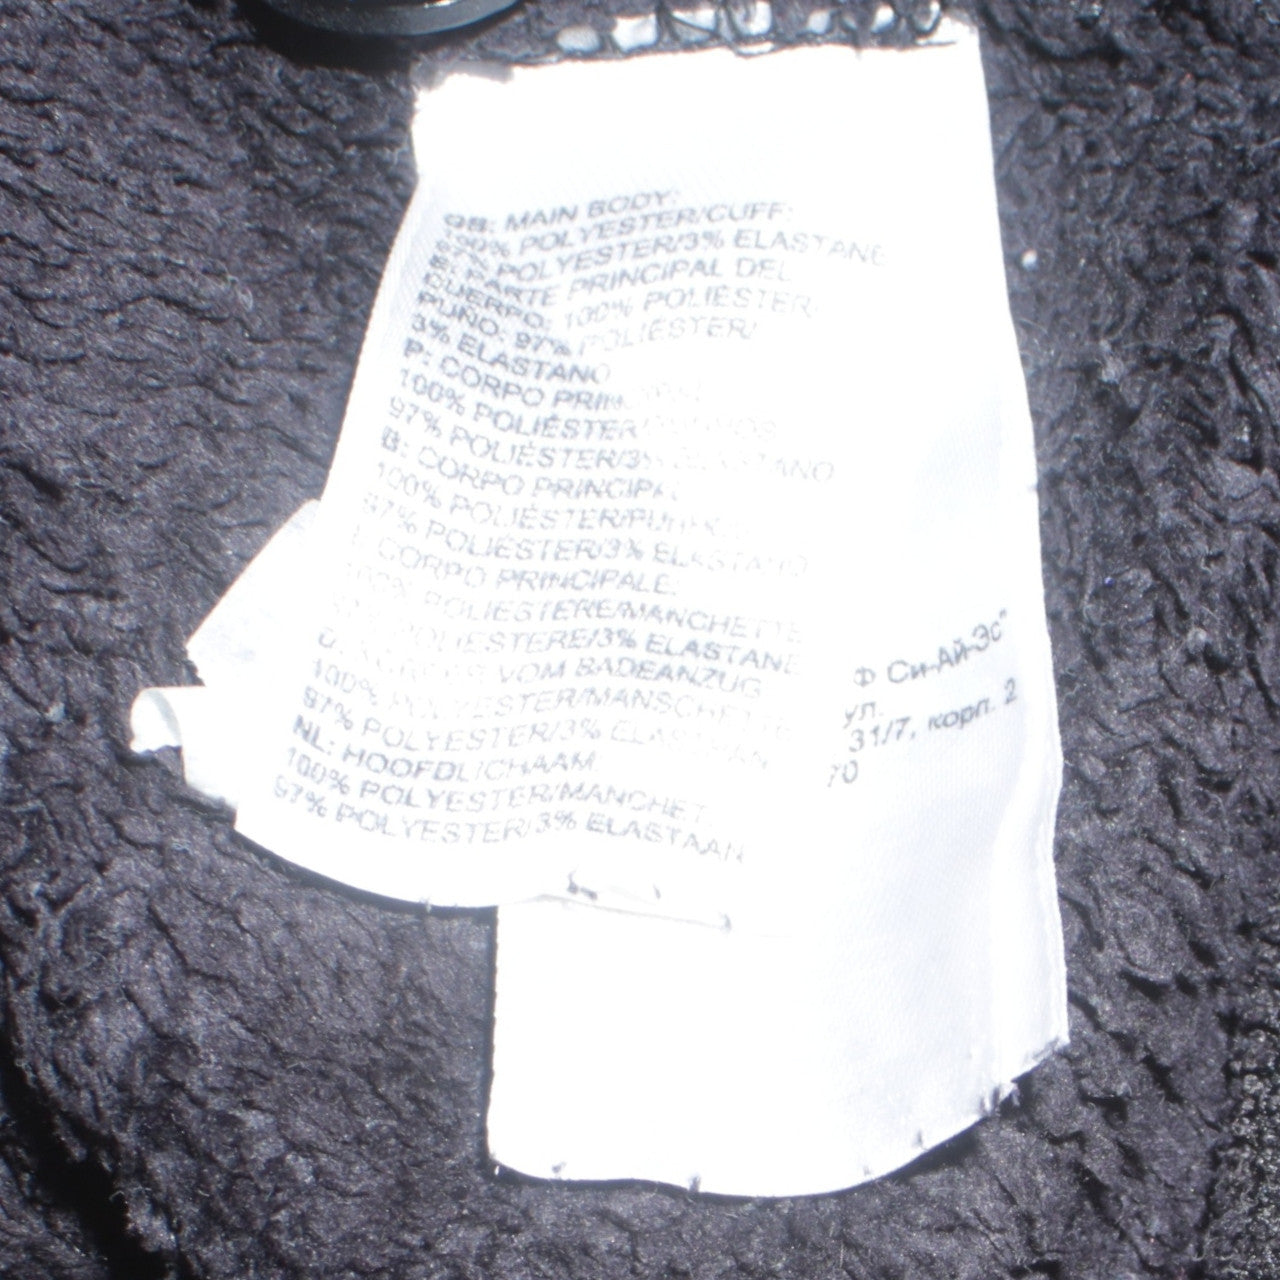 GB: MAIN BODY:
100% POLYESTER/CUFF:
97% POLYESTER/3% ELASTANE
E: PARTE PRINCIPAL DEL
CUERPO: 100% POLIÉSTER/
PUÑO: 97% POLIÉSTER/
3% ELASTANO
P: CORPO PRINCIPAL
100% POLIÉSTER/PUNHOS
97% POLIÉSTER/3% ELASTANO
B: CORPO PRINCIPAL
100% POLIÉSTER/PUNHOS
97% POLIÉSTER/3% ELASTANO
I: CORPO PRINCIPALE:
100% POLIESTERE/MANCHETTE
97% POLIESTERE/3% ELASTANE
VOM BADEANZUG
100% POLYESTER/MANSCHETTE
97% POLYESTER/3% ELASTHAN
NL: HOOFDLICHAAM:
100% POLYESTER/MANCHET
97% POLYESTER/3% ELASTAAN
Ф Си-Ай-Эс"
ул.
31/7, корп. 2
70